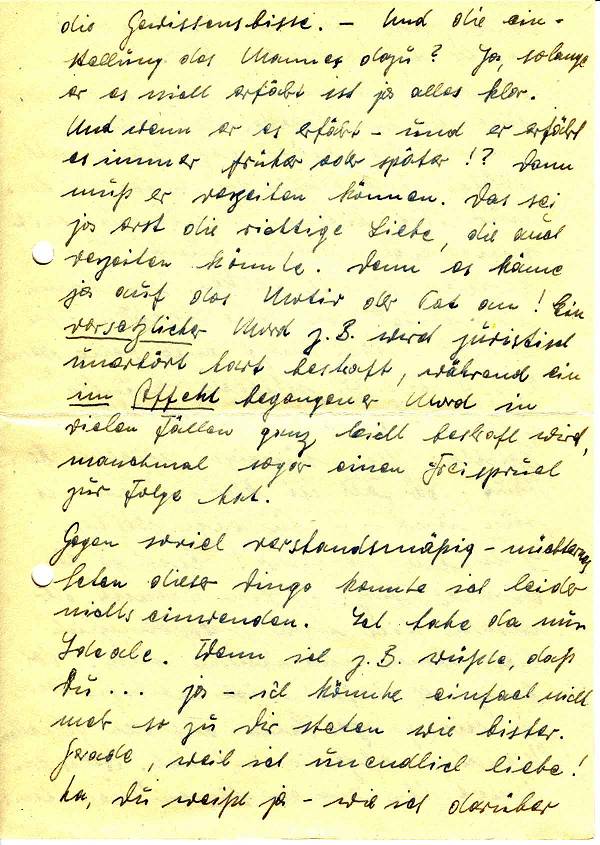 die Gewissensbisse. – Und die ein-
stellung des Mannes dazu? Ja, solange
er es nicht erfährt ist ja alles klar.
Und wenn er es erfährt – und er erfährt
es immer früher oder später!? Dann
muß er verzeihen können. Das sei
ja erst die richtige Liebe, die auch
verzeihen könnte. Denn es käme
ja auf das Motiv der Tat an! Ein
vorsätzlicher Mord z.B. wird juristisch
unerhört hart bestraft, während ein
im Affekt begangener Mord in
vielen Fällen ganz leicht bestraft wird,
manchmal sogar einen Freispruch
zur Folge hat.
Gegen soviel verstandsmäßig – nüchternes
Sehen dieser Dinge konnte ich leider
nichts einwenden. Ich habe da nur
Ideale. Wenn ich z.B. wüßte, daß
Du... ja – ich könnte einfach nicht
mehr so zu Dir stehen wie bisher.
Gerade, weil ich unendlich liebe!
Na, Du weißt ja – wie ich darüber